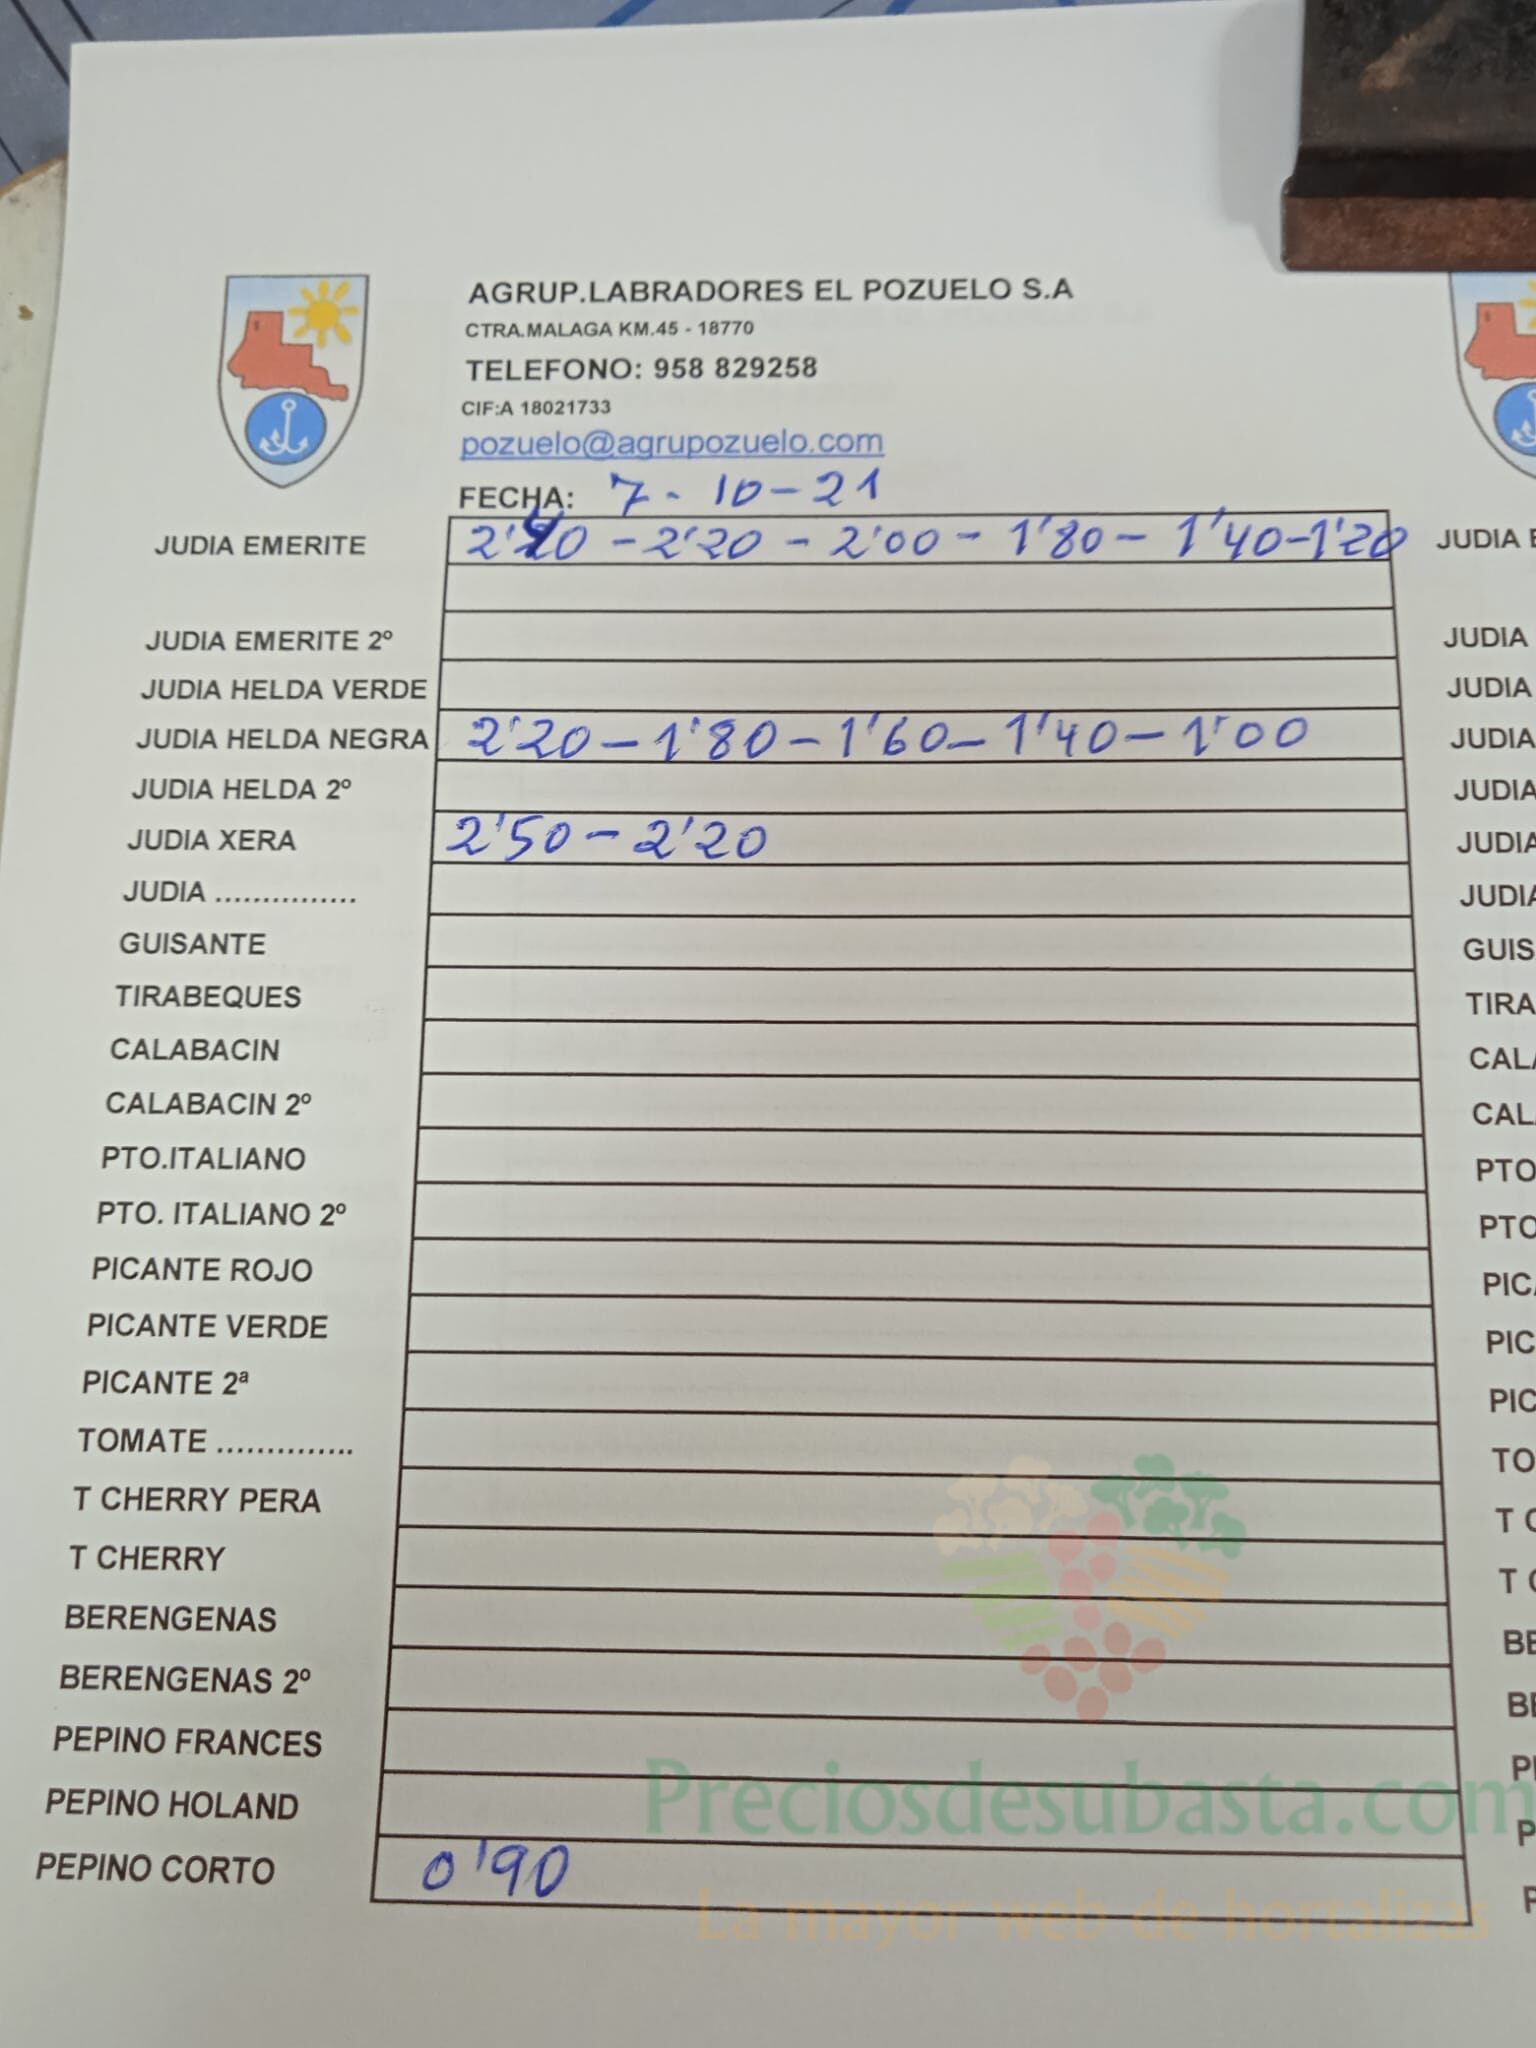 AGRUP.LABRADORES EL POZUELO S.A
CTRA.MALAGA KM.45 - 18770
TELEFONO: 958 829258
CIF:A 18021733
pozuelo@agrupozuelo.com
FECHA: 7 - 10 - 21
JUDIA EMERITE 2'40 - 2'20 - 2'00 - 1'80 - 1'40 - 1'20
JUDIA EMERITE 2º JUDIA
JUDIA HELDA VERDE JUDIA
JUDIA HELDA NEGRA 2'20 - 1'80 - 1'60 - 1'40 - 1'00 JUDIA
JUDIA HELDA 2º JUDIA
JUDIA XERA 2'50 - 2'20 JUDIA
JUDIA ............... JUDIA
GUISANTE
TIRABEQUES
CALABACIN
CALABACIN 2º
PTO.ITALIANO PTO
PTO. ITALIANO 2º PTO
PICANTE ROJO
PICANTE VERDE
PICANTE 2ª
TOMATE ..............
T CHERRY PERA
T CHERRY
BERENGENAS
BERENGENAS 2º
PEPINO FRANCES
PEPINO HOLAND
PEPINO CORTO 0'90
Preciosdesubasta.com
La mayor web de hortalizas